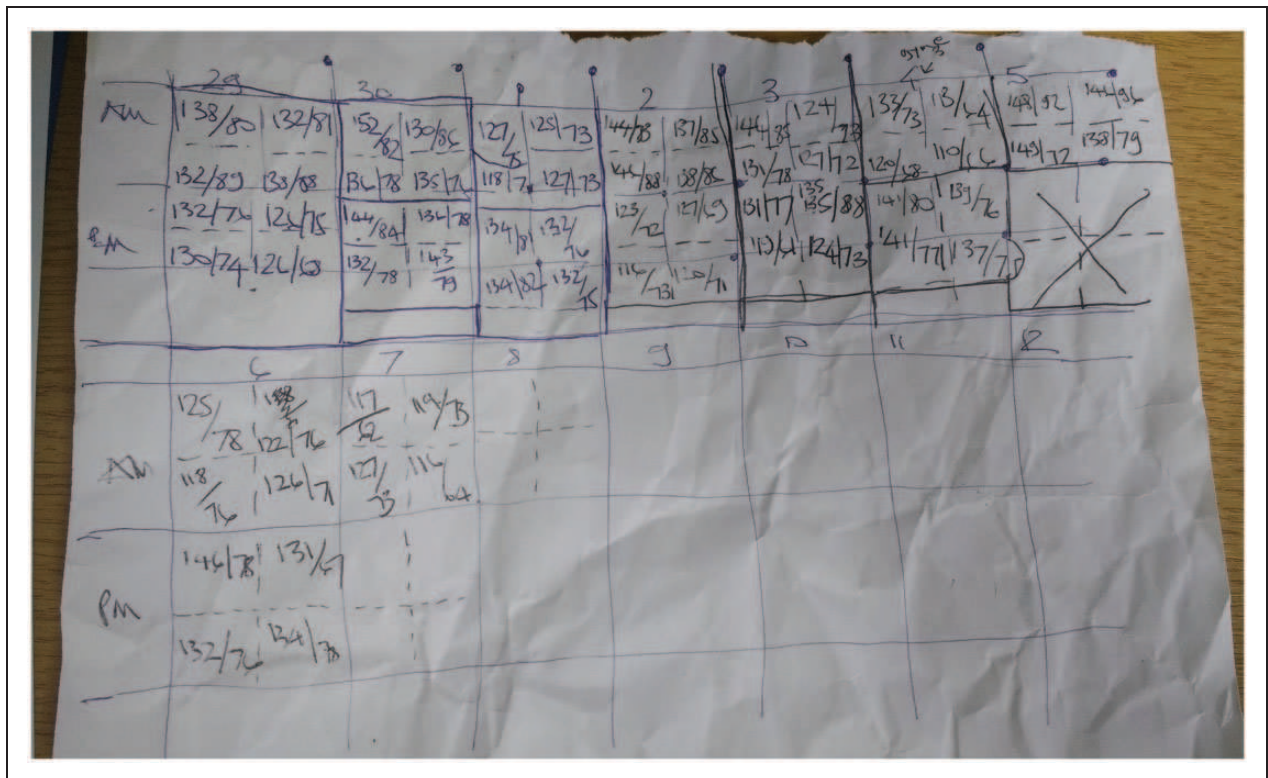 29 30 1 2 3 5
AM 138/80 132/81 152/82 130/86 127/75 125/73 144/83 137/85 144/85 124/73 133/73 131/64 148/92 144/96
132/89 138/88 136/78 135/76 118/7 127/73 146/88 138/86 131/78 127/72 120/68 110/66 149/72 138/79
PM 132/76 126/75 144/84 136/78 134/81 132/76 123/72 127/69 131/77 135 135/88 141/80 139/76
130/74 126/63 132/78 143/79 134/82 132/75 116/73 120/71 124/73 141/77 137/75
6 7 8 9 10 11 12
AM 125/78 122/76 117/52 119/73
118/76 126/71 127/73 116/64
PM 146/78 131/67
132/76 134/78